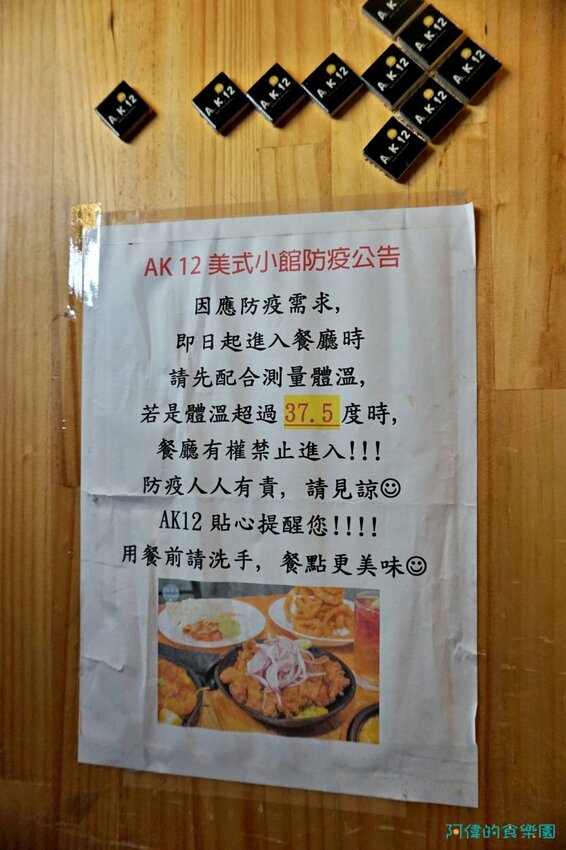 A.K.12
A.K.12
A.K.12
A.K.12
A.K.12
A.K.12
A.K.12
A.K.12
A.K.12
A.K.12
AK 12 美式小館防疫公告
因應防疫需求,
即日起進入餐廳時
請先配合測量體溫,
若是體溫超過 37.5 度時,
餐廳有權禁止進入!!!
防疫人人有責, 請見諒☺
AK12 貼心提醒您!!!!
用餐前請洗手, 餐點更美味☺
阿偉的食樂園